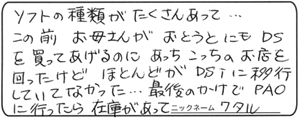 ソフトの種類がたくさんあって…
この前 お母さんが おとうとにも DS
を買ってあげるのに あっちこっちの お店を
回ったけど ほとんどが DSiに移行
していてなかった…最後のかけで PAO
に行ったら 在庫があって ニックネーム ワタル